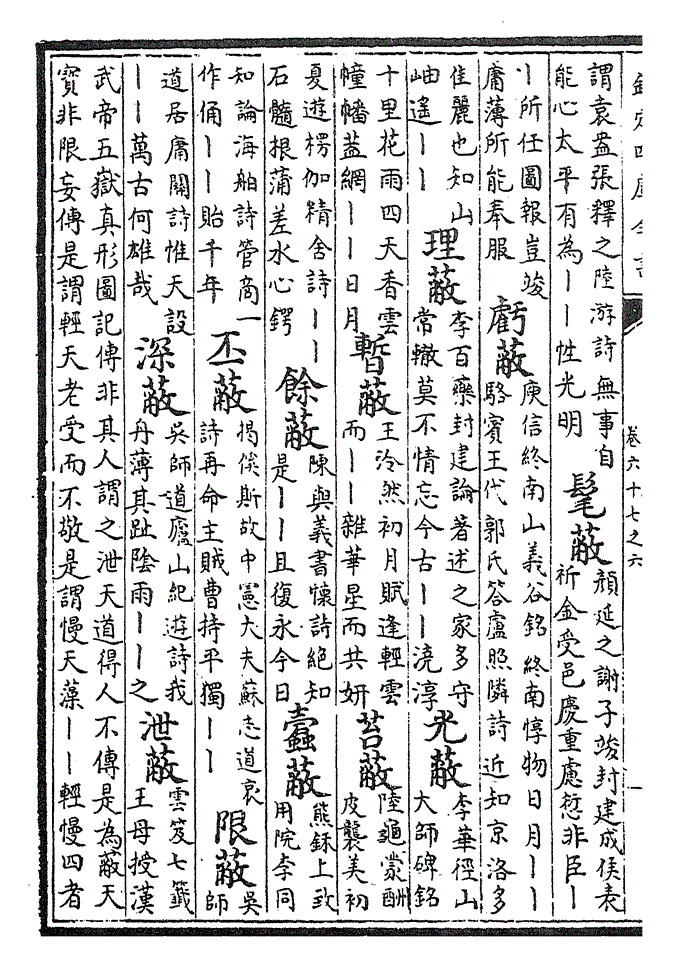 欽定四庫全書
卷六十七之六
謂袁盎張釋之陸游詩無事自
能心太平有為丨丨性光明
髦蔽
顏延之謝子竣封建成侯表
祈金受邑慶重慮愆非臣丨
丨所任圖報豈竣
庸薄所能奉服
虧蔽
庾信終南山義谷銘終南惇物日月丨丨
駱賓王代郭氏答盧照隣詩近知京洛多
佳麗也知山
岫遙丨丨
理蔽
李百藥封建論著述之家多守
常轍莫不情忘今古丨丨澆淳
光蔽
李華徑山
大師碑銘
十里花雨四天香雲
幢幡蓋網丨丨日月
暫蔽
王泠然初月賦逢輕雲
而丨丨雜華星而共妍
苔蔽
陸龜蒙酬
皮襲美初
夏遊楞伽精舍詩丨丨
石髓根蒲差水心鍔
餘蔽
陳與義書懷詩絶知
是丨丨且復永今日
蠹蔽
熊鉌上致
用院李同
知論海舶詩管商一
作俑丨丨貽千年
丕蔽
揭傒斯故中憲大夫蘇志道哀
詩再命主賊曹持平獨丨丨
限蔽
吳
師
道居庸關詩惟天設
丨丨萬古何雄哉
深蔽
吳師道廬山紀遊詩我
丹薄其趾陰雨丨丨之
泄蔽
雲笈七籤
王母授漢
武帝五嶽真形圖記傳非其人謂之泄天道得人不傳是為蔽天
寶非限妄傳是謂輕天老受而不敬是謂慢天藻丨丨輕慢四者